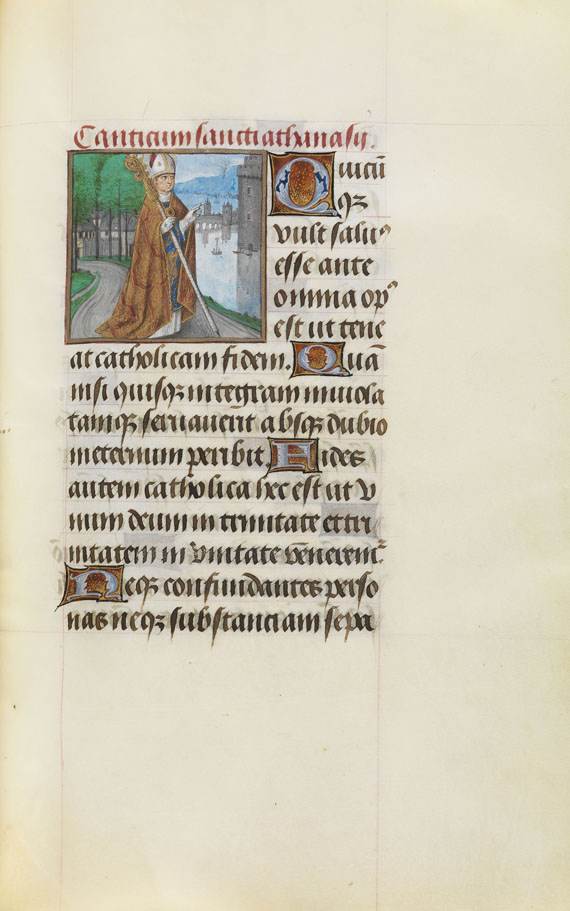 Canticum sancti athanasij.
Quicū
qꝫ
vult saluꝰ
esse ante
omnia opꝰ
est ut tene
at catholicam fidem. Quā
nisi quisqꝫ integram inuiola
tamqꝫ seruauerit absqꝫ dubio
ineternum peribit. Fides
autem catholica hec est ut v
num deum in trinitate et tri
nitatem in vnitate venerem᷑.
Neqꝫ confundantes perso
nas neqꝫ substanciam sepa